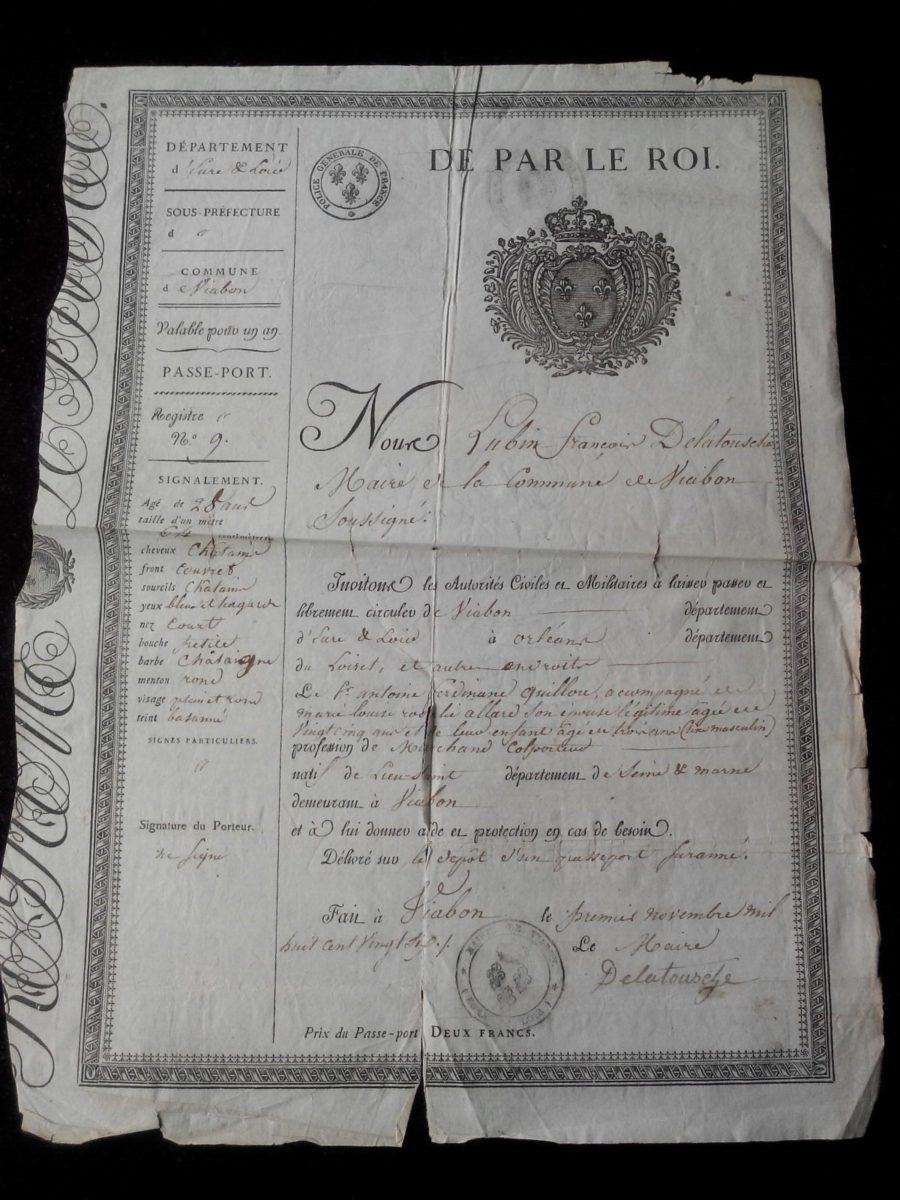 DÉPARTEMENT
d'Eure & Loire
SOUS-PRÉFECTURE
d
COMMUNE
de Viabon
Valable pour un an.
PASSE-PORT.
Registre
N.º 9.
SIGNALEMENT.
Agé de 28 ans
taille d'un mètre
centimètres
cheveux Châtains
front Couvert
sourcils Châtains
yeux bleus et hagards
nez Court
bouche petite
barbe Châtaigne
menton rond
visage plein et rond
teint basanné
SIGNES PARTICULIERS.
Signature du Porteur.
ne signe
POLICE GÉNÉRALE DE FRANCE
DE PAR LE ROI.
Nous Lubin françois Delatousche
Maire de la Commune de Viabon
Soussigné.
Invitons les Autorités Civiles et Militaires à laisser passer et
librement circuler de Viabon département
d'Eure & Loire à orléans département
du Loiret, et autres endroits
Le Sr antoine Ferdinand Guillou, accompagné de
marie louise allard son épouse légitime âgée de
Vingt cinq ans et de leur enfant âgé de trois ans (sexe masculin)
profession de Marchand Colporteur
natif de Lieu-Saint département de Seine & marne
demeurant à Viabon
et à lui donner aide et protection en cas de besoin.
Délivré sur le dépôt d'un passeport suranné.
Fait à Viabon le premier novembre mil
huit cent vingt
Le Maire
Delatousche
Prix du Passe-port DEUX FRANCS.